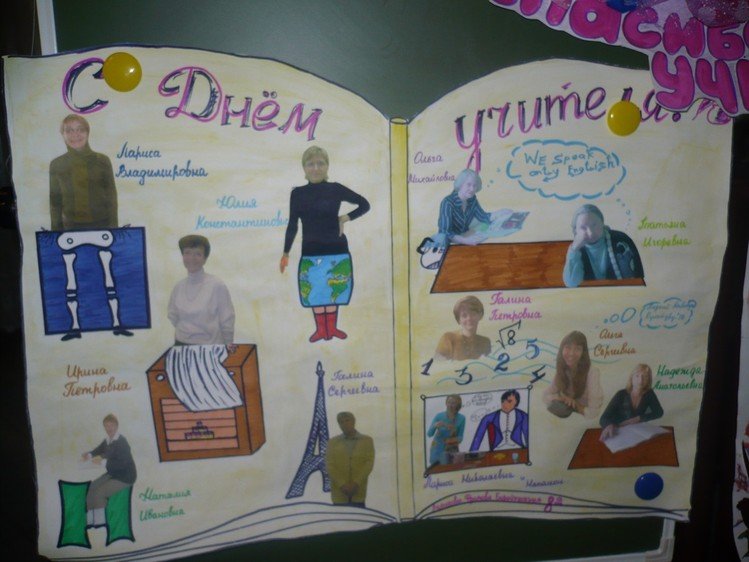 С Днём
учителя!
Лариса
Владимировна
Юлия
Константиновна
Ирина
Петровна
Галина
Сергеевна
Наталия
Ивановна
Ольга
Михайловна
WE Speak
only English
Игоревна
Галина
Петровна
√8
1 3 2 5 4
Ольга
Сергеевна
Надежда
Анатольевна
Лариса Николаевна
Спасибо